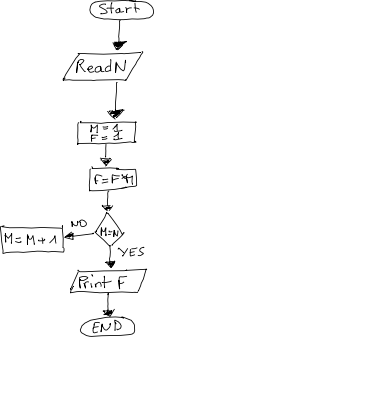 Start
Read N
M = 1
F = 1
F = F*M
M=N
NO
M = M + 1
YES
Print F
END